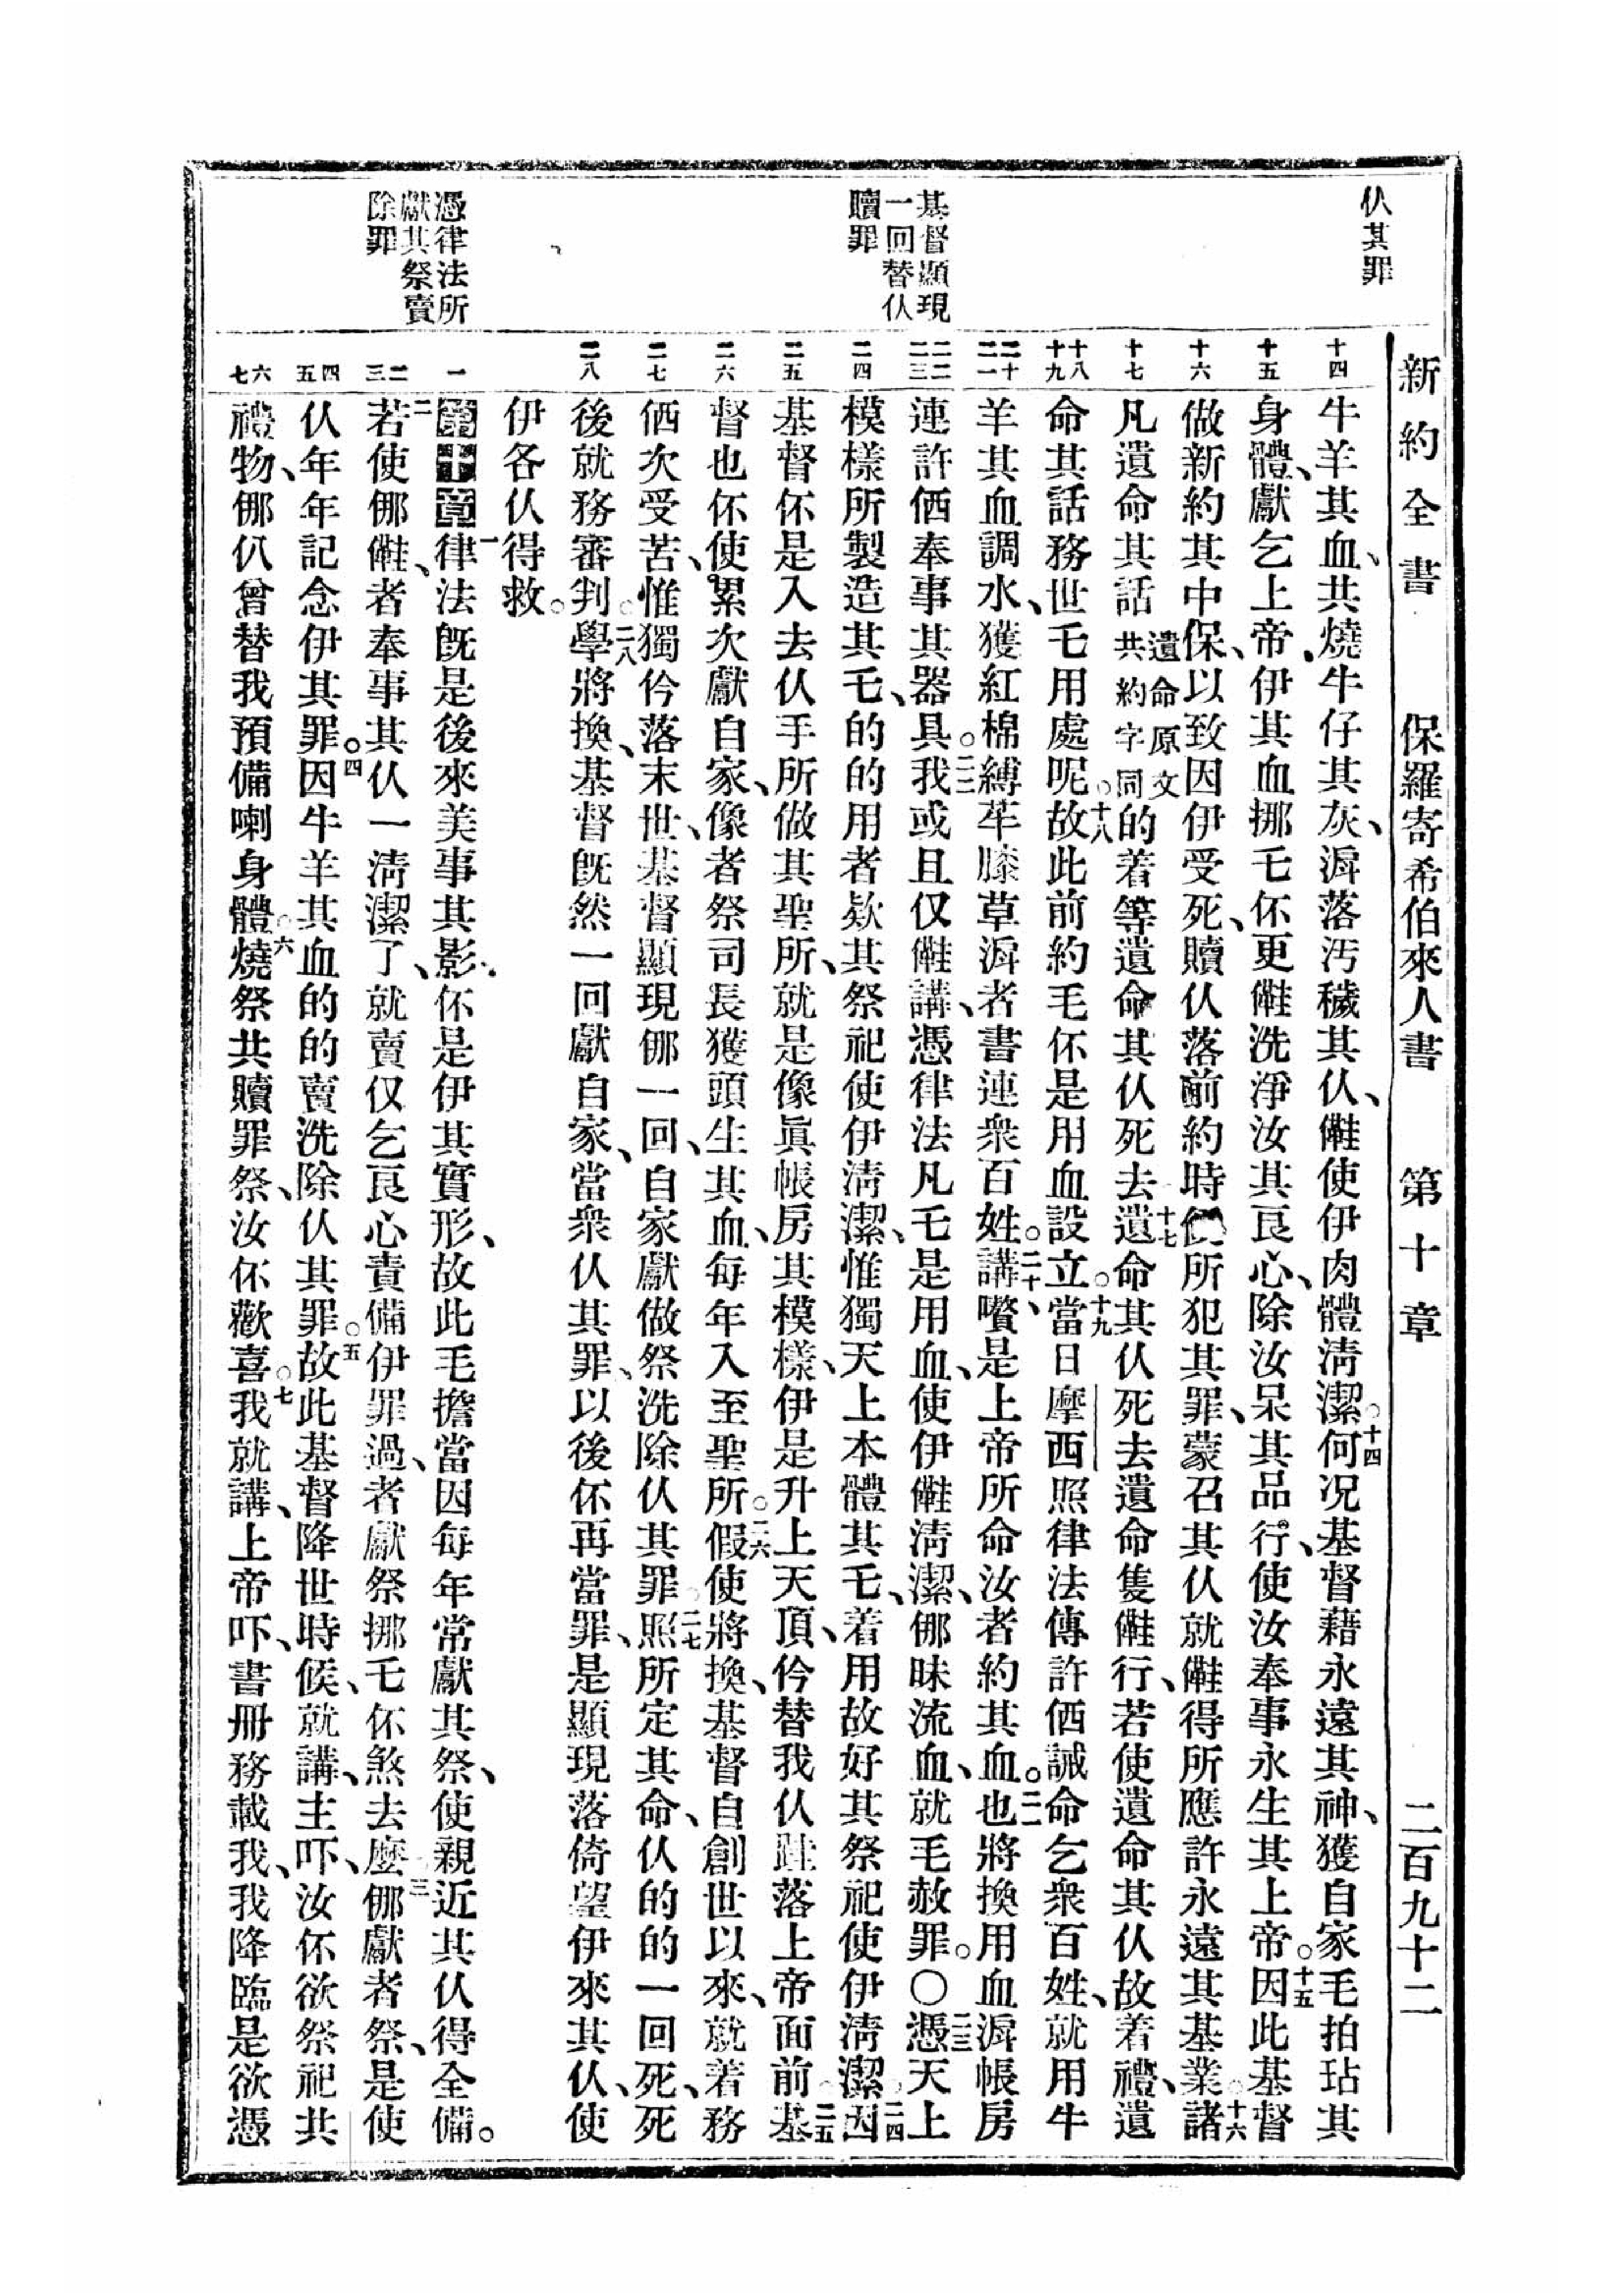 仈其罪
基督顯現
一回替仈
贖罪
憑律法所
獻其祭賣
除罪
新約全書 保羅寄希伯來人書 第十章 二百九十二
十四 牛羊其血、共燒牛仔其灰、漘落汚穢其仈、使伊肉體淸潔。十四何况基督藉永遠其神、獲自家毛拍玷其
十五 身體、獻乞上帝、伊其血挪乇伓更洗淨汝其良心、除汝呆其品行、使汝奉事永生其上帝。十五因此基督
十六 做新約其中保、以致因伊受死、贖仈落前約時所犯其罪、蒙召其仈就得所應許永遠其基業。十六諸
十七 凡遺命其話遺命原文共約字同的着等遺命其仈死去十七遺命其仈死去遺命隻行、若使遺命其仈故着禮、遺
十八 十九 命其話務世乇用處呢。十八故此前約毛伓是用血設立。十九當日摩西照律法傳許誡命乞衆百姓、就用牛
二十 二一 羊其血調水、獲紅棉縛苼膝草漘者書連衆百姓。二十講、嚽是上帝所命汝者約其血。二一也將換用血漘帳房
二二 二三 連許奉事其器具。二二我或且仅講、憑律法凡乇是用血、使伊淸潔、㑚昧流血、就毛赦罪。〇二三憑天上
二四 模樣所製造其乇、的的用者欵其祭祀使伊淸潔、惟獨天上本體其乇、着用故好其祭祀使伊淸潔。二四因
二五 基督伓是入去仈手所做其聖所、就是像眞帳房其模樣、伊是升上天頂、仱替我仈落上帝面前。二五基
二六 督也伓使累次獻自家、像者祭司長獲頭生其血、每年入至聖所。二六假使將換、基督自創世以來、就着務
二七 次受苦、惟獨仱落末世、基督顯現㑚一回、自家獻做祭洗除仈其罪。二七照所定其命、仈的的一回死、死
二八 後就務審判。二八學將換、基督旣然一回獻自家、當衆仈其罪、以後伓再當罪、是顯現落倚望伊來其仈、使
伊各仈得救。
一 第十章一律法旣是後來美事其影、伓是伊其實形、故此毛擔當因每年常獻其祭、使親近其仈得全備。
二 三 二若使㑚、者奉事其仈一淸潔了、就賣仅乞良心責備伊罪過、者獻祭挪乇伓煞去麽。三㑚獻者祭、是使
四 五 仈年年記念伊其罪。四因牛羊其血的的賣洗除仈其罪。五故此基督降世時候、就講、主吓、汝伓欲祭祀共
六 七 禮物、㑚仈曾替我預備喇身體。六燒祭共贖罪祭、汝伓歡喜。七我就講、上帝吓、書冊務載我、我降臨是欲憑